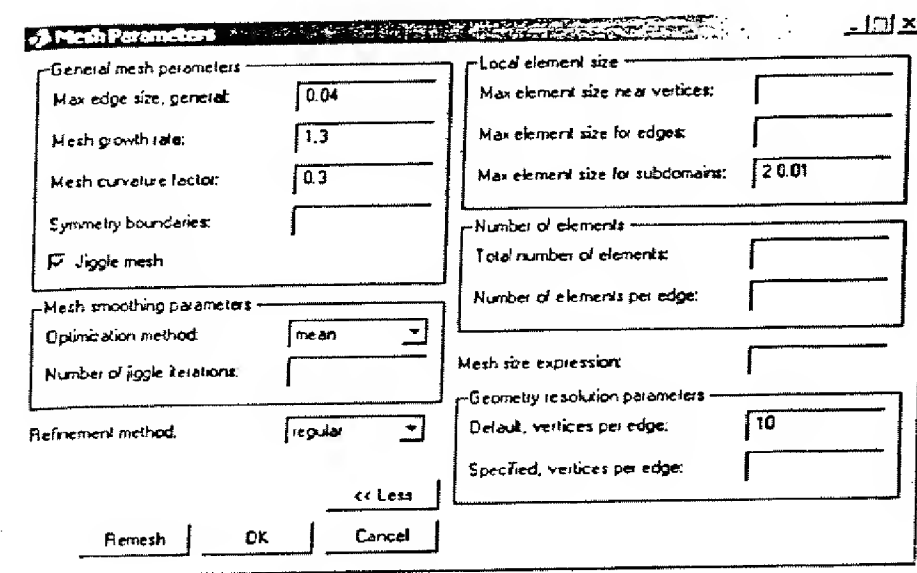 Mesh Parameters
General mesh parameters
Max edge size, general: 0.04
Mesh growth rate: 1.3
Mesh curvature factor: 0.3
Symmetry boundaries:
Jiggle mesh
Mesh smoothing parameters
Optimization method: mean
Number of jiggle iterations:
Refinement method: regular
<< Less
Remesh OK Cancel
Local element size
Max element size near vertices:
Max element size for edges:
Max element size for subdomains: 2 0.01
Number of elements
Total number of elements:
Number of elements per edge:
Mesh size expression:
Geometry resolution parameters
Default, vertices per edge: 10
Specified, vertices per edge: